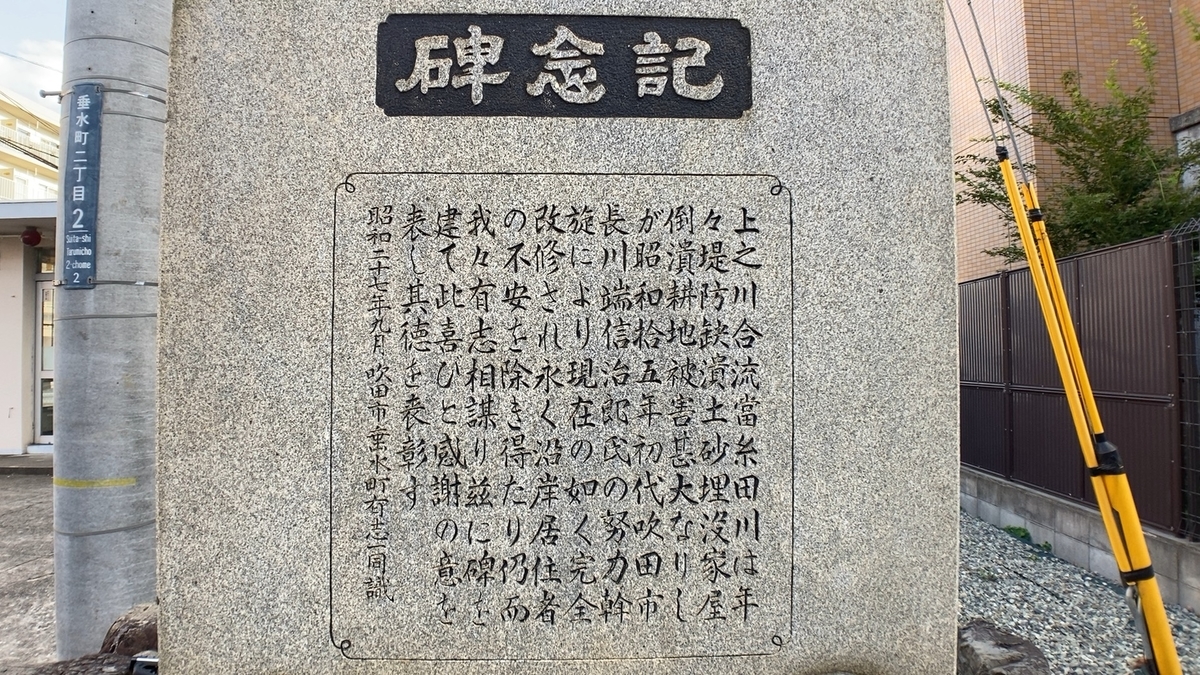 記念碑
上之川合流當糸田川は年
々堤防缺潰土砂埋没家屋
倒潰耕地被害甚大なりし
が昭和拾五年初代吹田市
長川端信治郎氏の努力幹
旋により現在の如く完全
改修され永く沿岸居住者
の不安を除き得たり仍而
我々有志相謀り茲に碑を
建て此喜びと感謝の意を
表し其徳を表彰す
昭和二十七年九月 吹田市垂水町有志一同識
垂水町二丁目
2
Suita-shi
Tarumicho
2-chome
2